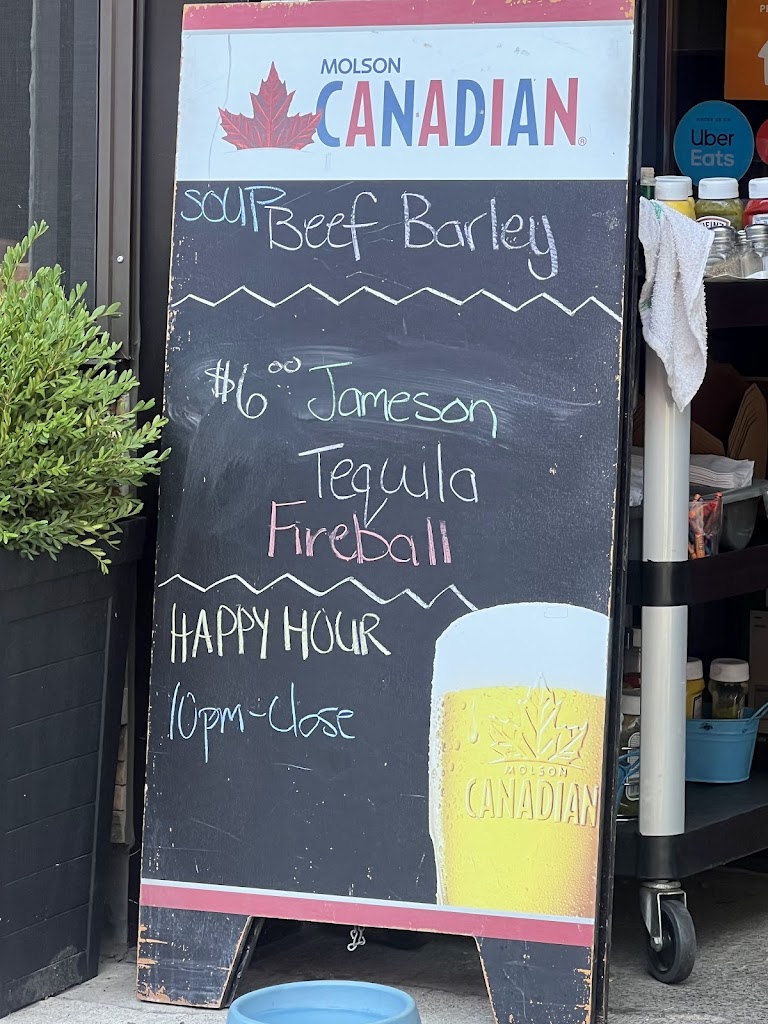 MOLSON
CANADIAN®
SOUP Beef Barley
$6⁰⁰ Jameson
Tequila
Fireball
HAPPY HOUR
10pm-close
MOLSON
CANADIAN
Uber
Eats
HEINZ